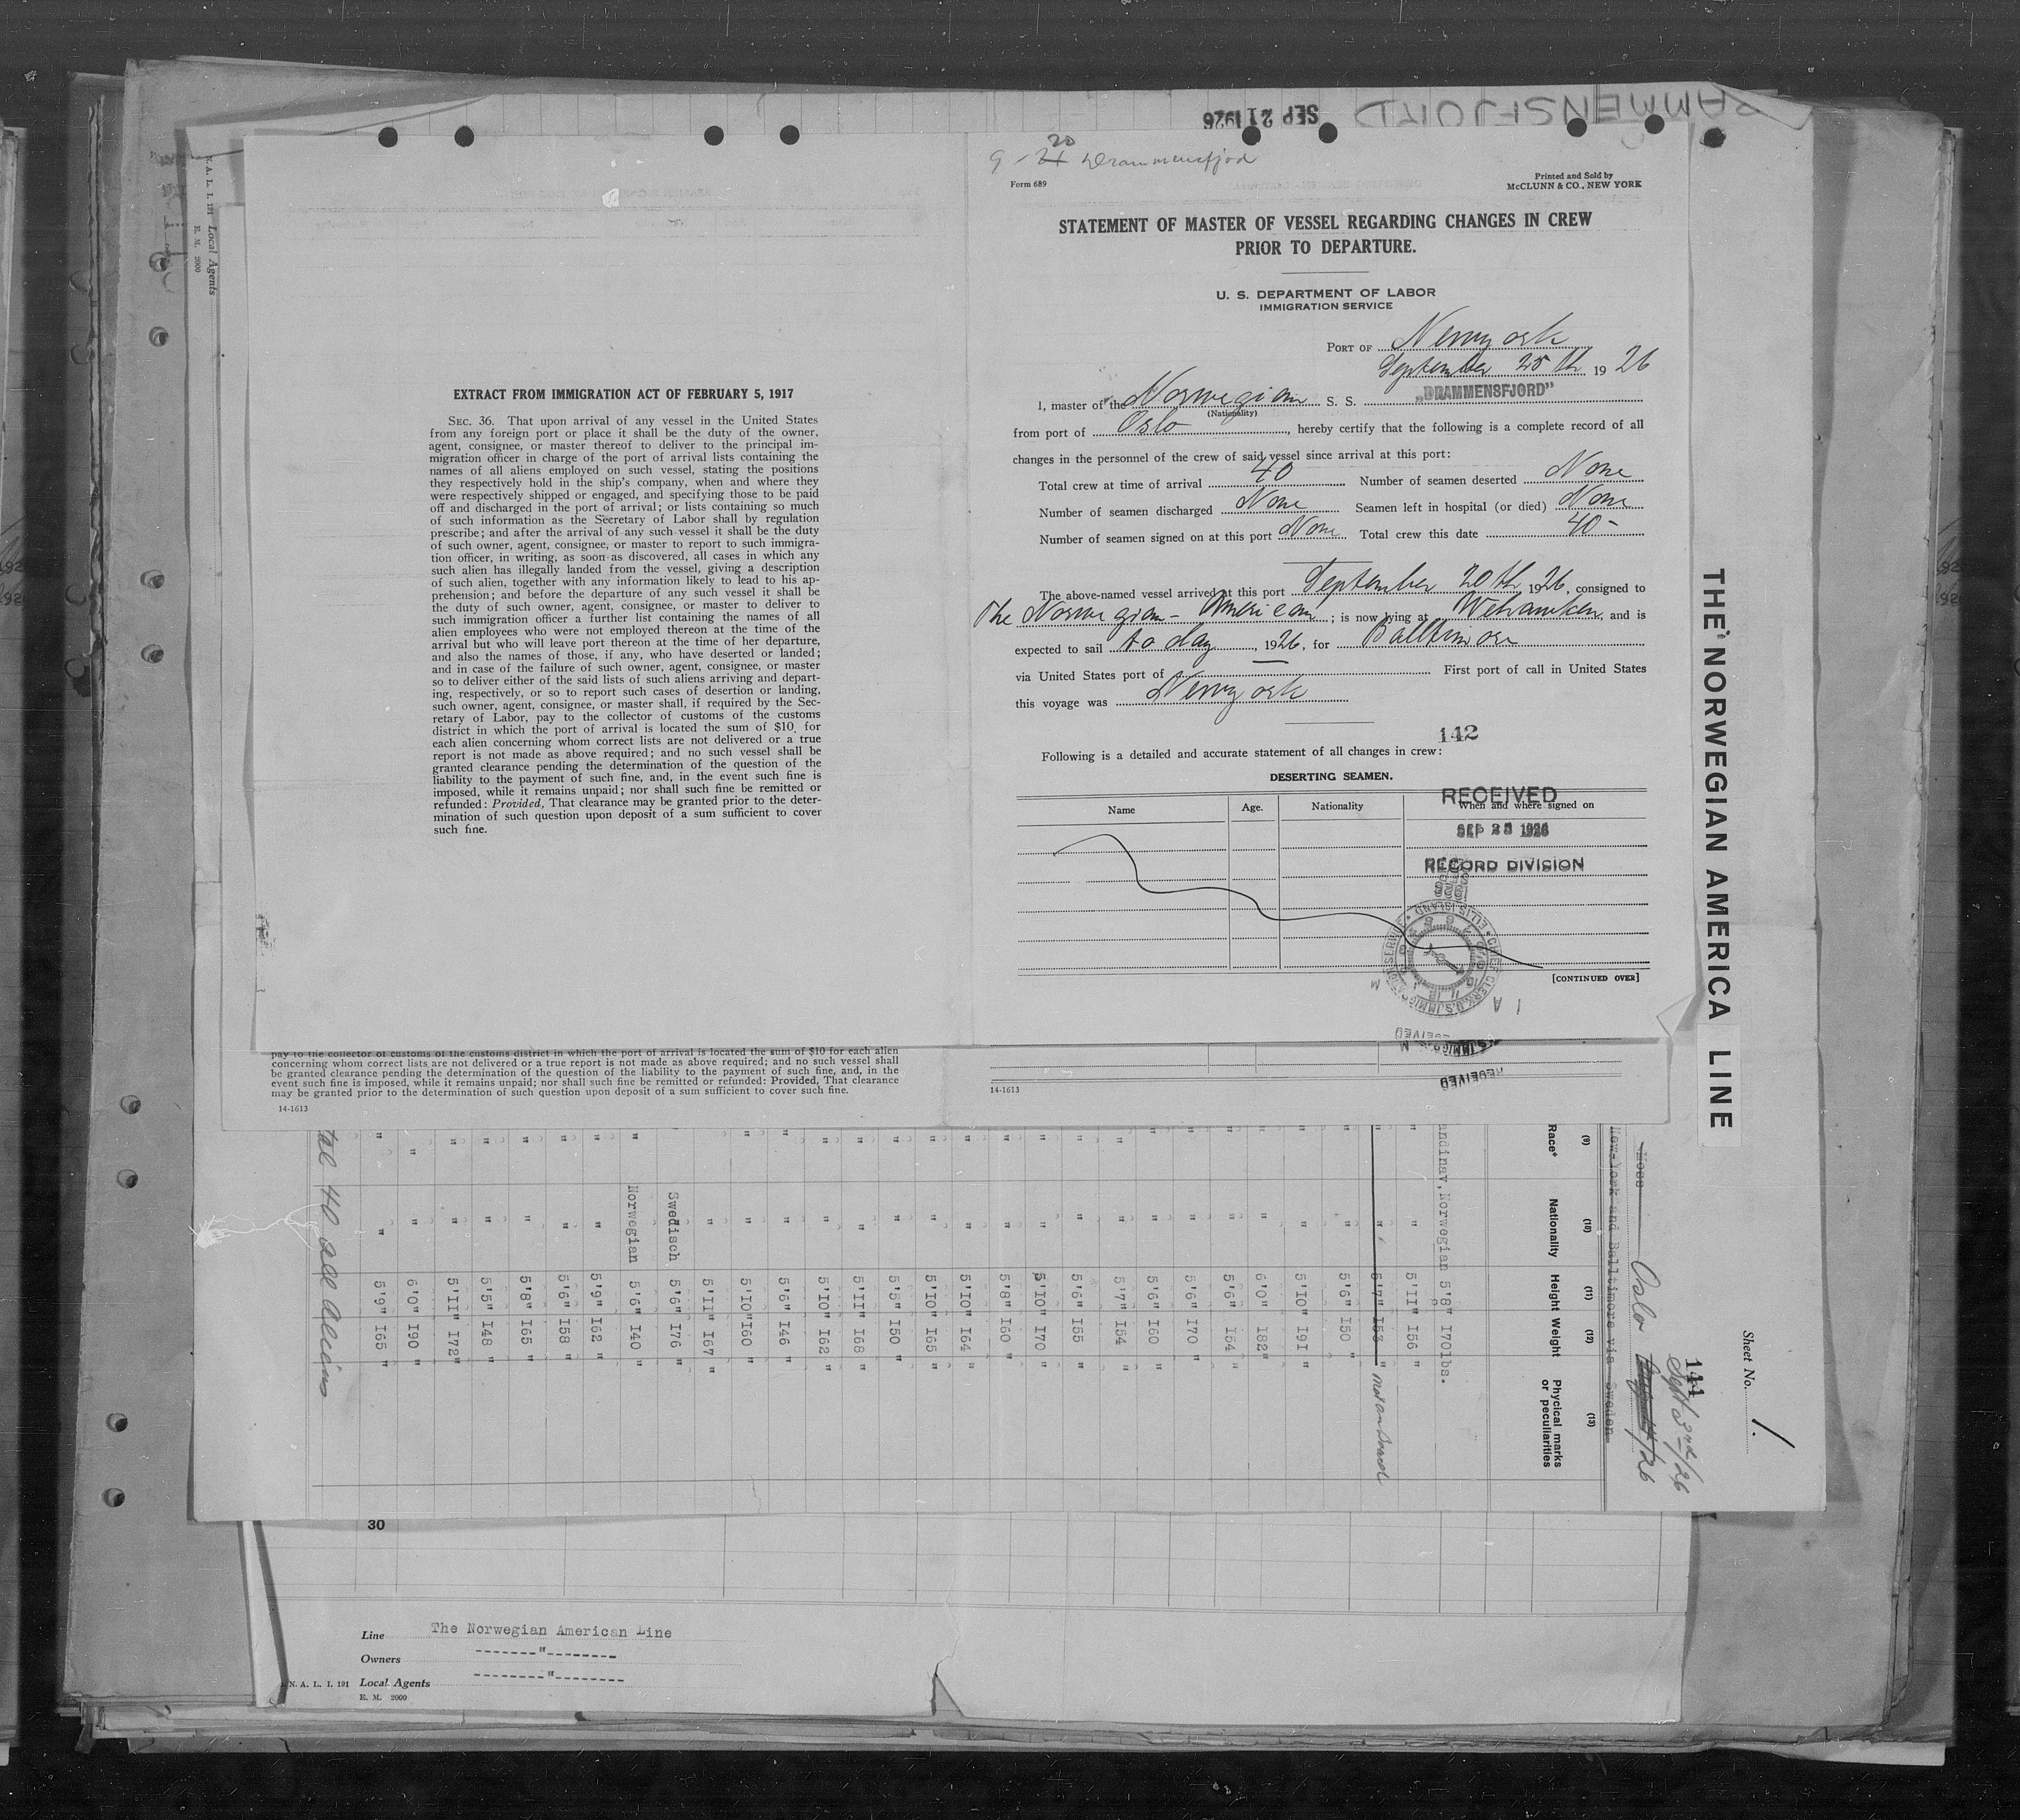 DRAMMENSFJORD
SEP 21 1926
9 - 20 Drammensfjord
Form 689
Printed and Sold by
McCLUNN & CO., NEW YORK
STATEMENT OF MASTER OF VESSEL REGARDING CHANGES IN CREW
PRIOR TO DEPARTURE.
U. S. DEPARTMENT OF LABOR
IMMIGRATION SERVICE
PORT OF New york
September 25th 1926
I, master of the Norwegian S. S. „DRAMMENSFJORD"
(Nationality)
from port of Oslo, hereby certify that the following is a complete record of all
changes in the personnel of the crew of said vessel since arrival at this port:
Total crew at time of arrival 40 Number of seamen deserted None
Number of seamen discharged None Seamen left in hospital (or died) None
Number of seamen signed on at this port None Total crew this date 40-
The above-named vessel arrived at this port September 20th 1926, consigned to
The Norwegian - American; is now lying at Wehawken, and is
expected to sail to day, 1926, for Balltimore
via United States port of — First port of call in United States
this voyage was New york
142
Following is a detailed and accurate statement of all changes in crew:
DESERTING SEAMEN.
Name Age. Nationality When and where signed on
RECEIVED
SEP 28 1926
RECORD DIVISION
CHIEF CLERK, U.S. IMMIGRATION SERVICE
ELLIS ISLAND
[CONTINUED OVER]
EXTRACT FROM IMMIGRATION ACT OF FEBRUARY 5, 1917
SEC. 36. That upon arrival of any vessel in the United States
from any foreign port or place it shall be the duty of the owner,
agent, consignee, or master thereof to deliver to the principal im-
migration officer in charge of the port of arrival lists containing the
names of all aliens employed on such vessel, stating the positions
they respectively hold in the ship's company, when and where they
were respectively shipped or engaged, and specifying those to be paid
off and discharged in the port of arrival; or lists containing so much
of such information as the Secretary of Labor shall by regulation
prescribe; and after the arrival of any such vessel it shall be the duty
of such owner, agent, consignee, or master to report to such immigra-
tion officer, in writing, as soon as discovered, all cases in which any
such alien has illegally landed from the vessel, giving a description
of such alien, together with any information likely to lead to his ap-
prehension; and before the departure of any such vessel it shall be
the duty of such owner, agent, consignee, or master to deliver to
such immigration officer a further list containing the names of all
alien employees who were not employed thereon at the time of the
arrival but who will leave port thereon at the time of her departure,
and also the names of those, if any, who have deserted or landed;
and in case of the failure of such owner, agent, consignee, or master
so to deliver either of the said lists of such aliens arriving and depart-
ing, respectively, or so to report such cases of desertion or landing,
such owner, agent, consignee, or master shall, if required by the Sec-
retary of Labor, pay to the collector of customs of the customs
district in which the port of arrival is located the sum of $10 for
each alien concerning whom correct lists are not delivered or a true
report is not made as above required; and no such vessel shall be
granted clearance pending the determination of the question of the
liability to the payment of such fine, and, in the event such fine is
imposed, while it remains unpaid; nor shall such fine be remitted or
refunded: Provided, That clearance may be granted prior to the deter-
mination of such question upon deposit of a sum sufficient to cover
such fine.
pay to the collector of customs of the customs district in which the port of arrival is located the sum of $10 for each alien
concerning whom correct lists are not delivered or a true report is not made as above required; and no such vessel shall
be granted clearance pending the determination of the question of the liability to the payment of such fine, and, in the
event such fine is imposed, while it remains unpaid; nor shall such fine be remitted or refunded: Provided, That clearance
may be granted prior to the determination of such question upon deposit of a sum sufficient to cover such fine.
14-1613
14-1613
RECEIVED
THE NORWEGIAN AMERICA LINE
Sheet No. 1.
141
Sept 3rd/26
Moss Oslo /26
New-York and Balltimore via Sweden
(9) (10) (11) (12) (13)
Race* Nationality Height Weight Physical marks or peculiarities
andinav, Norwegian 5'8" 170lbs.
" " 5'11" 156 "
" " 5'7" 153 " not on board
" " 5'6" 150 "
" " 5'10" 191 "
" " 6'0" 182 "
" " 5'6" 154 "
" " 5'6" 170 "
" " 5'6" 160 "
" " 5'7" 154 "
" " 5'6" 155 "
" " 5'10" 170 "
" " 5'8" 160 "
" " 5'10" 164 "
" " 5'10" 165 "
" " 5'5" 150 "
" " 5'11" 168 "
" " 5'10" 162 "
" " 5'6" 146 "
" " 5'10" 160 "
" " 5'11" 167 "
" Swedisch 5'6" 176 "
" Norwegian 5'6" 140 "
" " 5'9" 162 "
" " 5'6" 158 "
" " 5'8" 165 "
" " 5'5" 148 "
" " 5'11" 172 "
" " 6'0" 190 "
" " 5'9" 165 "
tal 40 all aliens
30
Line The Norwegian American Line
Owners -------"--------
N. A. L. I. 191 Local Agents -------"--------
E. M. 2000
N. A. L. I. 191 Local Agents
E. M. 2000